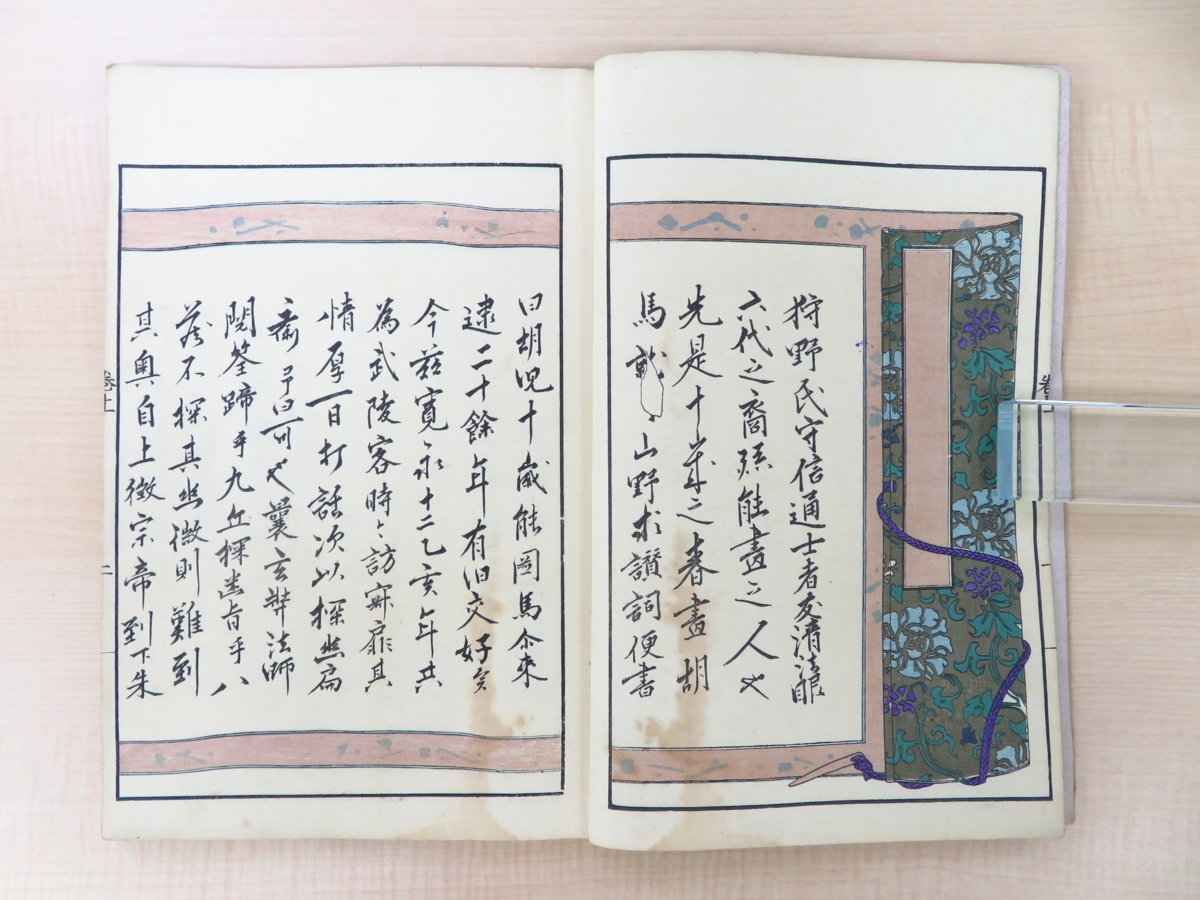 狩野氏守信通士者友清法眼
六代之裔孫能畫之人也
先是十歳之春畫胡
馬戴山野求讃詞便書
曰胡児十歳能圖馬尒来
逮二十餘年有旧交好矣
今茲寛永十二乙亥年共
為武陵客時〻訪寂扉其
情厚一日打話次以探幽扁
齋予曰可也曩玄弉法師
閲筌蹄乎九丘探幽旨乎八
蔵不探其幽微則難到
其奥自上徴宗帝到下朱
巻上
二